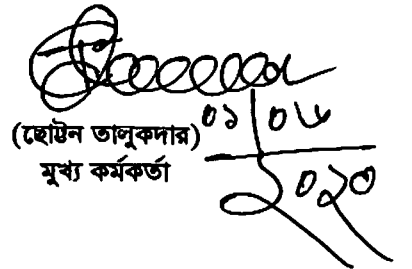 (ছোট্টন তালুকদার)
মুখ্য কর্মকর্তা
০১/০৬
২০২০